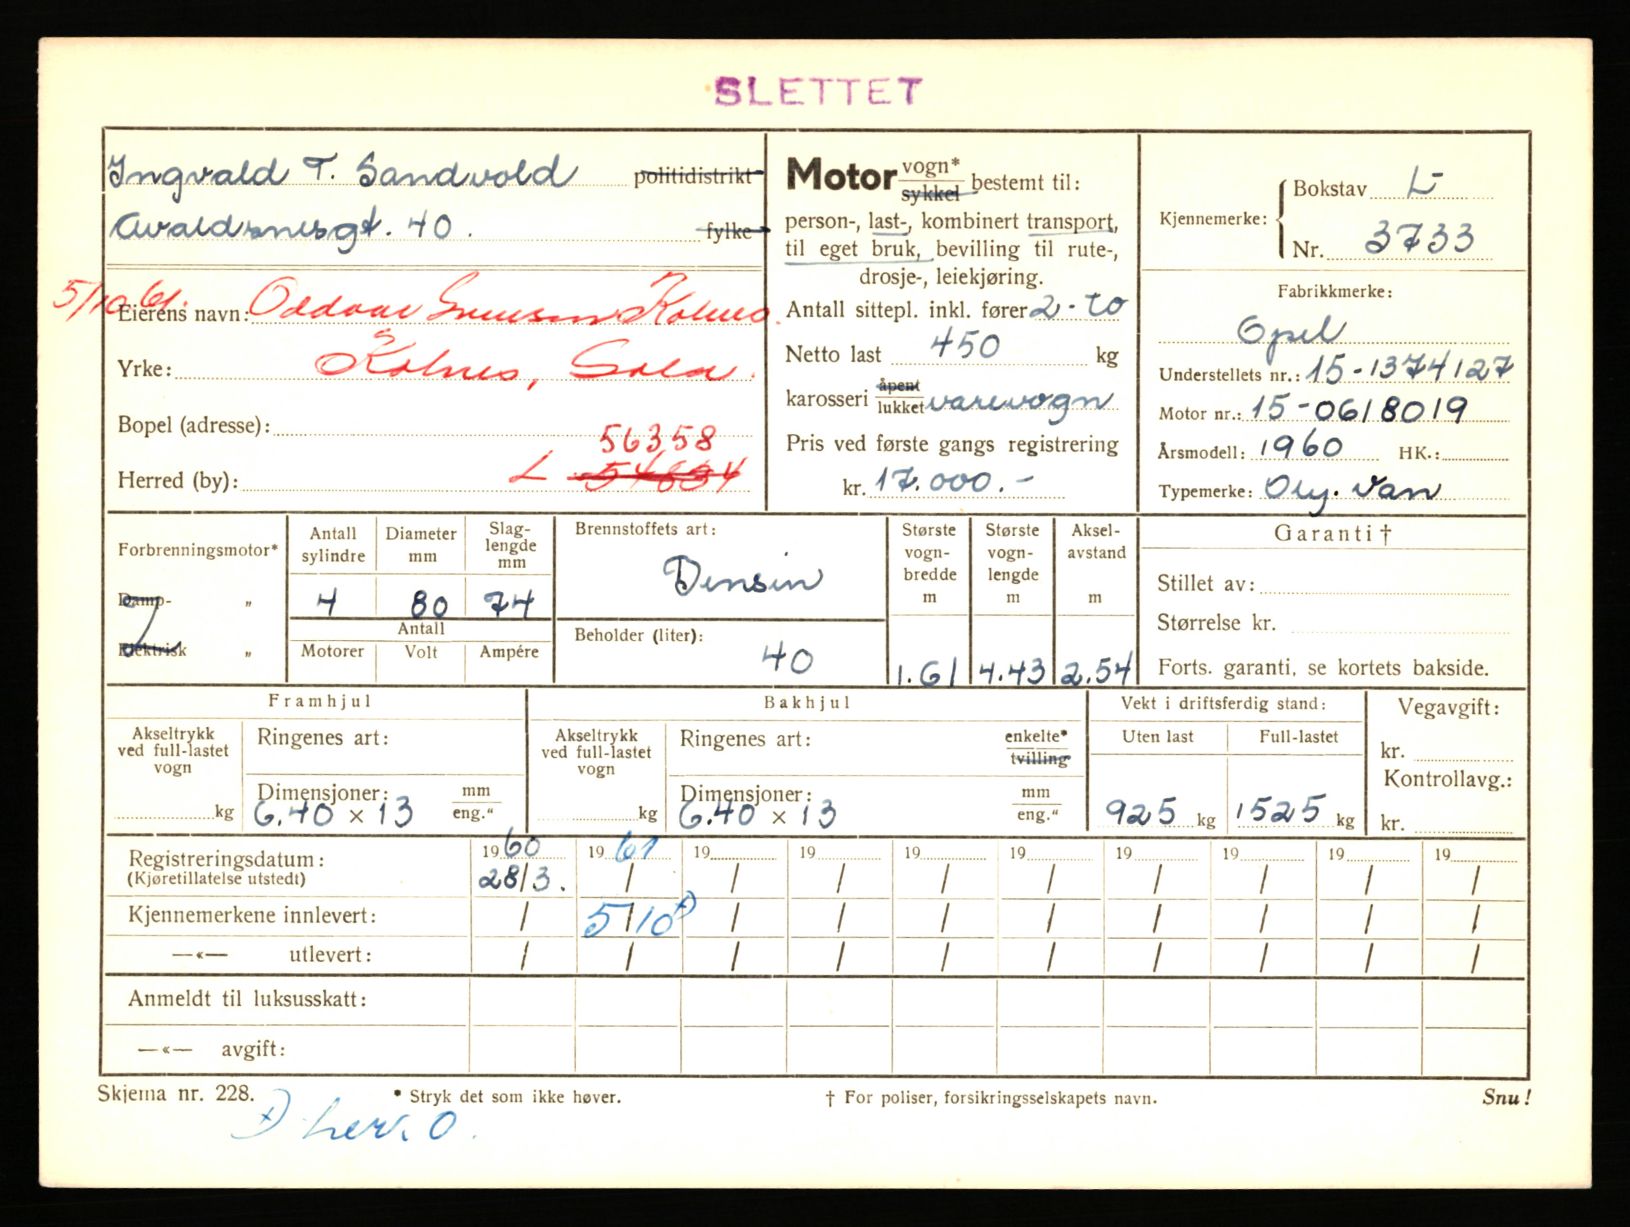 SLETTET
Ingvald T. Sandvold politidistrikt
Avaldsnesgt. 40. fylke
5/10 61.
Eierens navn: Oddvar Kolnes.
Yrke: Kolnes, Sola.
Bopel (adresse):
56358
Herred (by): L 54834
Motor vogn* sykkel bestemt til:
person-, last-, kombinert transport,
til eget bruk, bevilling til rute-,
drosje-, leiekjøring.
Antall sittepl. inkl. fører 2 - to
Netto last 450 kg
karosseri åpent lukket varevogn
Pris ved første gangs registrering
kr. 17.000.-
Kjennemerke: Bokstav L
Nr. 3733
Fabrikkmerke:
Opel
Understellets nr.: 15-1374127
Motor nr.: 15-0618019
Årsmodell: 1960 HK.:
Typemerke: Oly. Van
Forbrenningsmotor*
Damp- „
Elektrisk „
Antall sylindre
4
Diameter mm
80
Slag-lengde mm
74
Antall
Motorer Volt Ampére
Brennstoffets art:
Bensin
Beholder (liter):
40
Største vogn-bredde m
1.61
Største vogn-lengde m
4.43
Aksel-avstand m
2.54
Garanti †
Stillet av:
Størrelse kr.
Forts. garanti, se kortets bakside.
Framhjul
Akseltrykk ved full-lastet vogn
kg
Ringenes art:
Dimensjoner: mm eng."
6.40 x 13
Bakhjul
Akseltrykk ved full-lastet vogn
kg
Ringenes art: enkelte* tvilling
Dimensjoner: mm eng."
6.40 x 13
Vekt i driftsferdig stand:
Uten last Full-lastet
925 kg 1525 kg
Vegavgift:
kr.
Kontrollavg.:
kr.
Registreringsdatum: 1960 1961 19 19 19 19 19 19 19 19
(Kjøretillatelse utstedt) 28/3. / / / / / / / / /
Kjennemerkene innlevert: / 5/10 / / / / / / / /
—«— utlevert: / / / / / / / / / /
Anmeldt til luksusskatt:
—«— avgift:
Skjema nr. 228. * Stryk det som ikke høver. † For poliser, forsikringsselskapets navn. Snu!